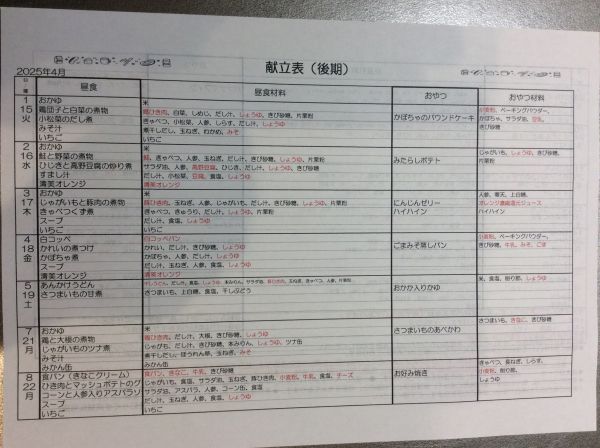 献立表（後期）
2025年4月
日 曜 昼食 昼食材料 おやつ おやつ材料
1 15 火
おかゆ
鶏団子と白菜の煮物
小松菜のだし煮
みそ汁
いちご
米
鶏ひき肉、白菜、しめじ、だし汁、しょうゆ、きび砂糖、片栗粉
きゃべつ、小松菜、人参、しらす、だし汁、しょうゆ
煮干しだし、玉ねぎ、わかめ、みそ
いちご
かぼちゃのパウンドケーキ
小麦粉、ベーキングパウダー、
かぼちゃ、サラダ油、豆乳、
きび砂糖
2 16 水
おかゆ
鮭と野菜の煮物
ひじきと高野豆腐の炒り煮
すまし汁
清美オレンジ
米
鮭、きゃべつ、人参、玉ねぎ、だし汁、きび砂糖、しょうゆ、片栗粉
サラダ油、人参、高野豆腐、ひじき、だし汁、きび砂糖、しょうゆ
だし汁、小松菜、豆腐、食塩、しょうゆ
清美オレンジ
みたらしポテト
じゃがいも、しょうゆ、片栗粉、
きび砂糖
3 17 木
おかゆ
じゃがいもと豚肉の煮物
きゃべつくず煮
スープ
いちご
米
豚ひき肉、玉ねぎ、人参、じゃがいも、だし汁、きび砂糖、しょうゆ、片栗粉
きゃべつ、きゅうり、だし汁、しょうゆ、片栗粉
だし汁、玉ねぎ、食塩、しょうゆ
いちご
にんじんゼリー
ハイハイン
人参、寒天、上白糖、
オレンジ濃縮還元ジュース
ハイハイン
4 18 金
白コッペ
かれいの煮つけ
かぼちゃ煮
スープ
清美オレンジ
白コッペパン
かれい、だし汁、きび砂糖、しょうゆ
かぼちゃ、人参、だし汁、しょうゆ
だし汁、玉ねぎ、人参、食塩、しょうゆ
清美オレンジ
ごまみそ蒸しパン
小麦粉、ベーキングパウダー、
きび砂糖、牛乳、みそ、ごま
5 19 土
あんかけうどん
さつまいもの甘煮
干しうどん、だし汁、食塩、しょうゆ、本みりん、サラダ油、豚ひき肉、玉ねぎ、きゃべつ、人参、片栗粉
さつまいも、上白糖、食塩、干しぶどう
おかか入りかゆ
米、食塩、削り節、しょうゆ
7 21 月
おかゆ
鶏と大根の煮物
じゃがいものツナ煮
みそ汁
みかん缶
米
鶏ひき肉、だし汁、大根、きび砂糖、しょうゆ
じゃがいも、だし汁、きび砂糖、本みりん、しょうゆ、ツナ缶
煮干しだし、ほうれん草、玉ねぎ、みそ
みかん缶
さつまいものあべかわ
さつまいも、きなこ、きび砂糖
8 22 月
食パン（きなこクリーム）
ひき肉とマッシュポテトのグ
コーンと人参入りアスパラソ
スープ
いちご
食パン、きなこ、牛乳、きび砂糖
じゃがいも、食塩、サラダ油、玉ねぎ、豚ひき肉、小麦粉、牛乳、食塩、チーズ
サラダ油、アスパラ、人参、コーン缶、食塩
だし汁、玉ねぎ、人参、食塩、しょうゆ
いちご
お好み焼き
きゃべつ、食塩、しらす、
小麦粉、削り節、
しょうゆ